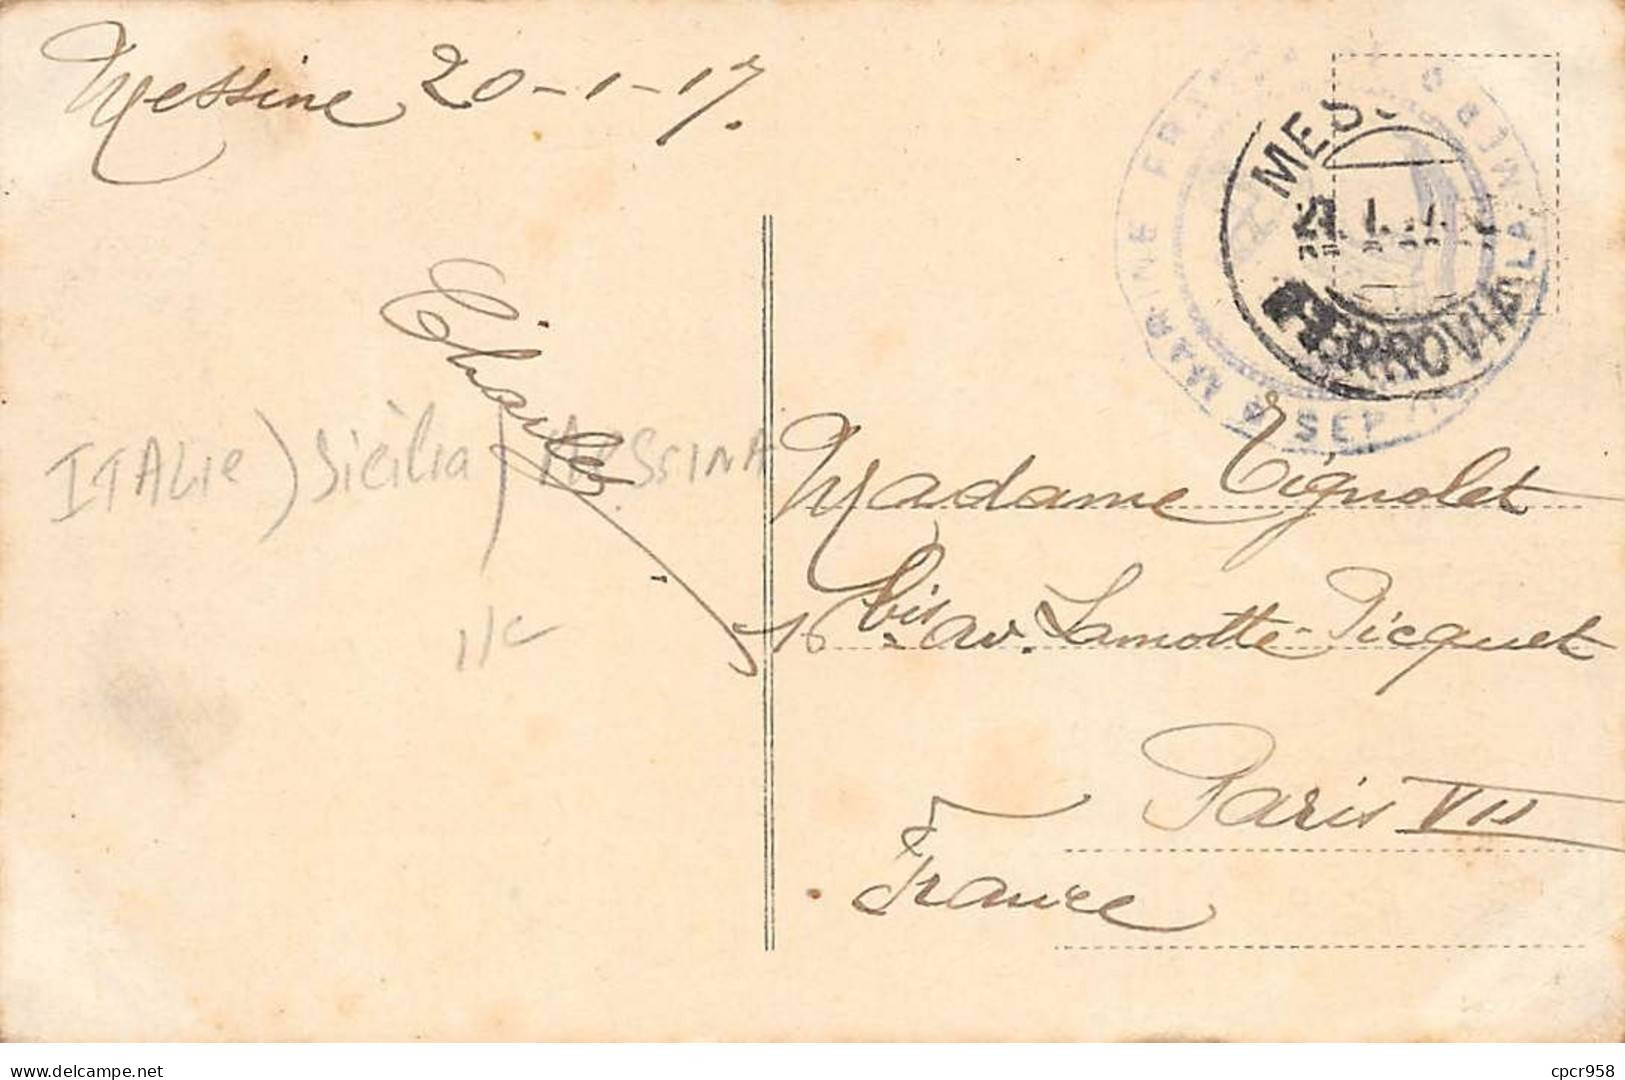 Messine 20-1-17.
Charles.
ITALIE) Sicilia) MESSINA
MARINE FRA
FERROVIA
Madame Tignolet
16 bis av. Lamotte-Picquet
Paris VII
France
delcampe.net
cpcr958